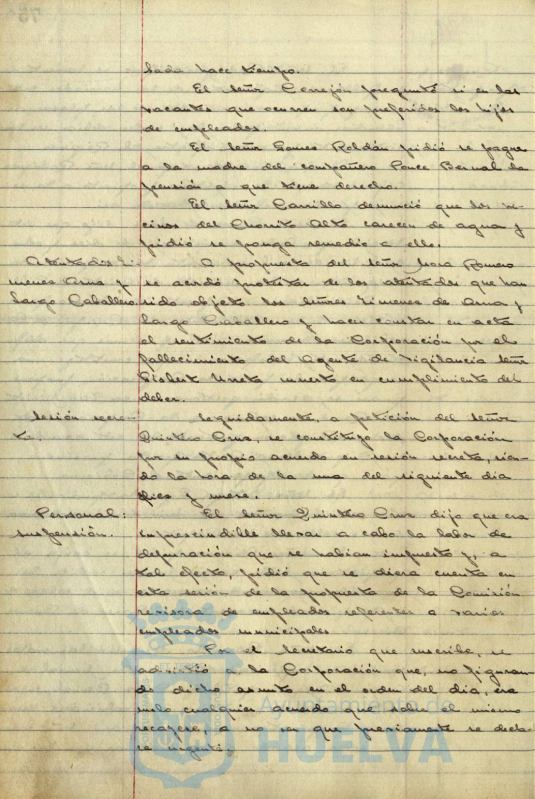 sada hace tiempo.
El señor Cerrejón preguntó si en las
vacantes que ocurren son preferidos los hijos
de empleados.
El señor Gomez Roldán pidió se pague
a la madre del compañero Ponce Bernal la
pensión a que tiene derecho.
El señor Carrillo denunció que los ve-
cinos del Chorrito Alto carecen de agua y
pidió se ponga remedio a ello.
Atentados Ji-
menez Asua y
Largo Caballero.
A propuesta del señor Mora Romero
se acordó protestar de los atentados que han
sido objeto los señores Jimenez de Asua y
Largo Caballero y hacer constar en acta
el sentimiento de la Corporación por el
fallecimiento del Agente de Vigilancia señor
Gisbert Urreta muerto en cumplimiento del
deber.
Sesión secre-
ta.
Seguidamente, a petición del señor
Quintero Cruz, se constituyó la Corporación
por su propio acuerdo en sesión secreta, sien-
do la hora de la una del siguiente dia
diez y nueve.
Personal:
suspensión.
El señor Quintero Cruz dijo que era
imprescindible llevar a cabo la labor de
depuración que se habían impuesto y, a
tal efecto, pidió que se diera cuenta en
esta sesión de la propuesta de la Comisión
revisora de empleados referentes a varios
empleados municipales
Por el Secretario que suscribe, se
advirtió a la Corporación que, no figuran-
do dicho asunto en el orden del dia, era
nulo cualquier acuerdo que sobre el mismo
recayere, a no ser que previamente se decla-
re urgente.
Ayuntamiento de
HUELVA